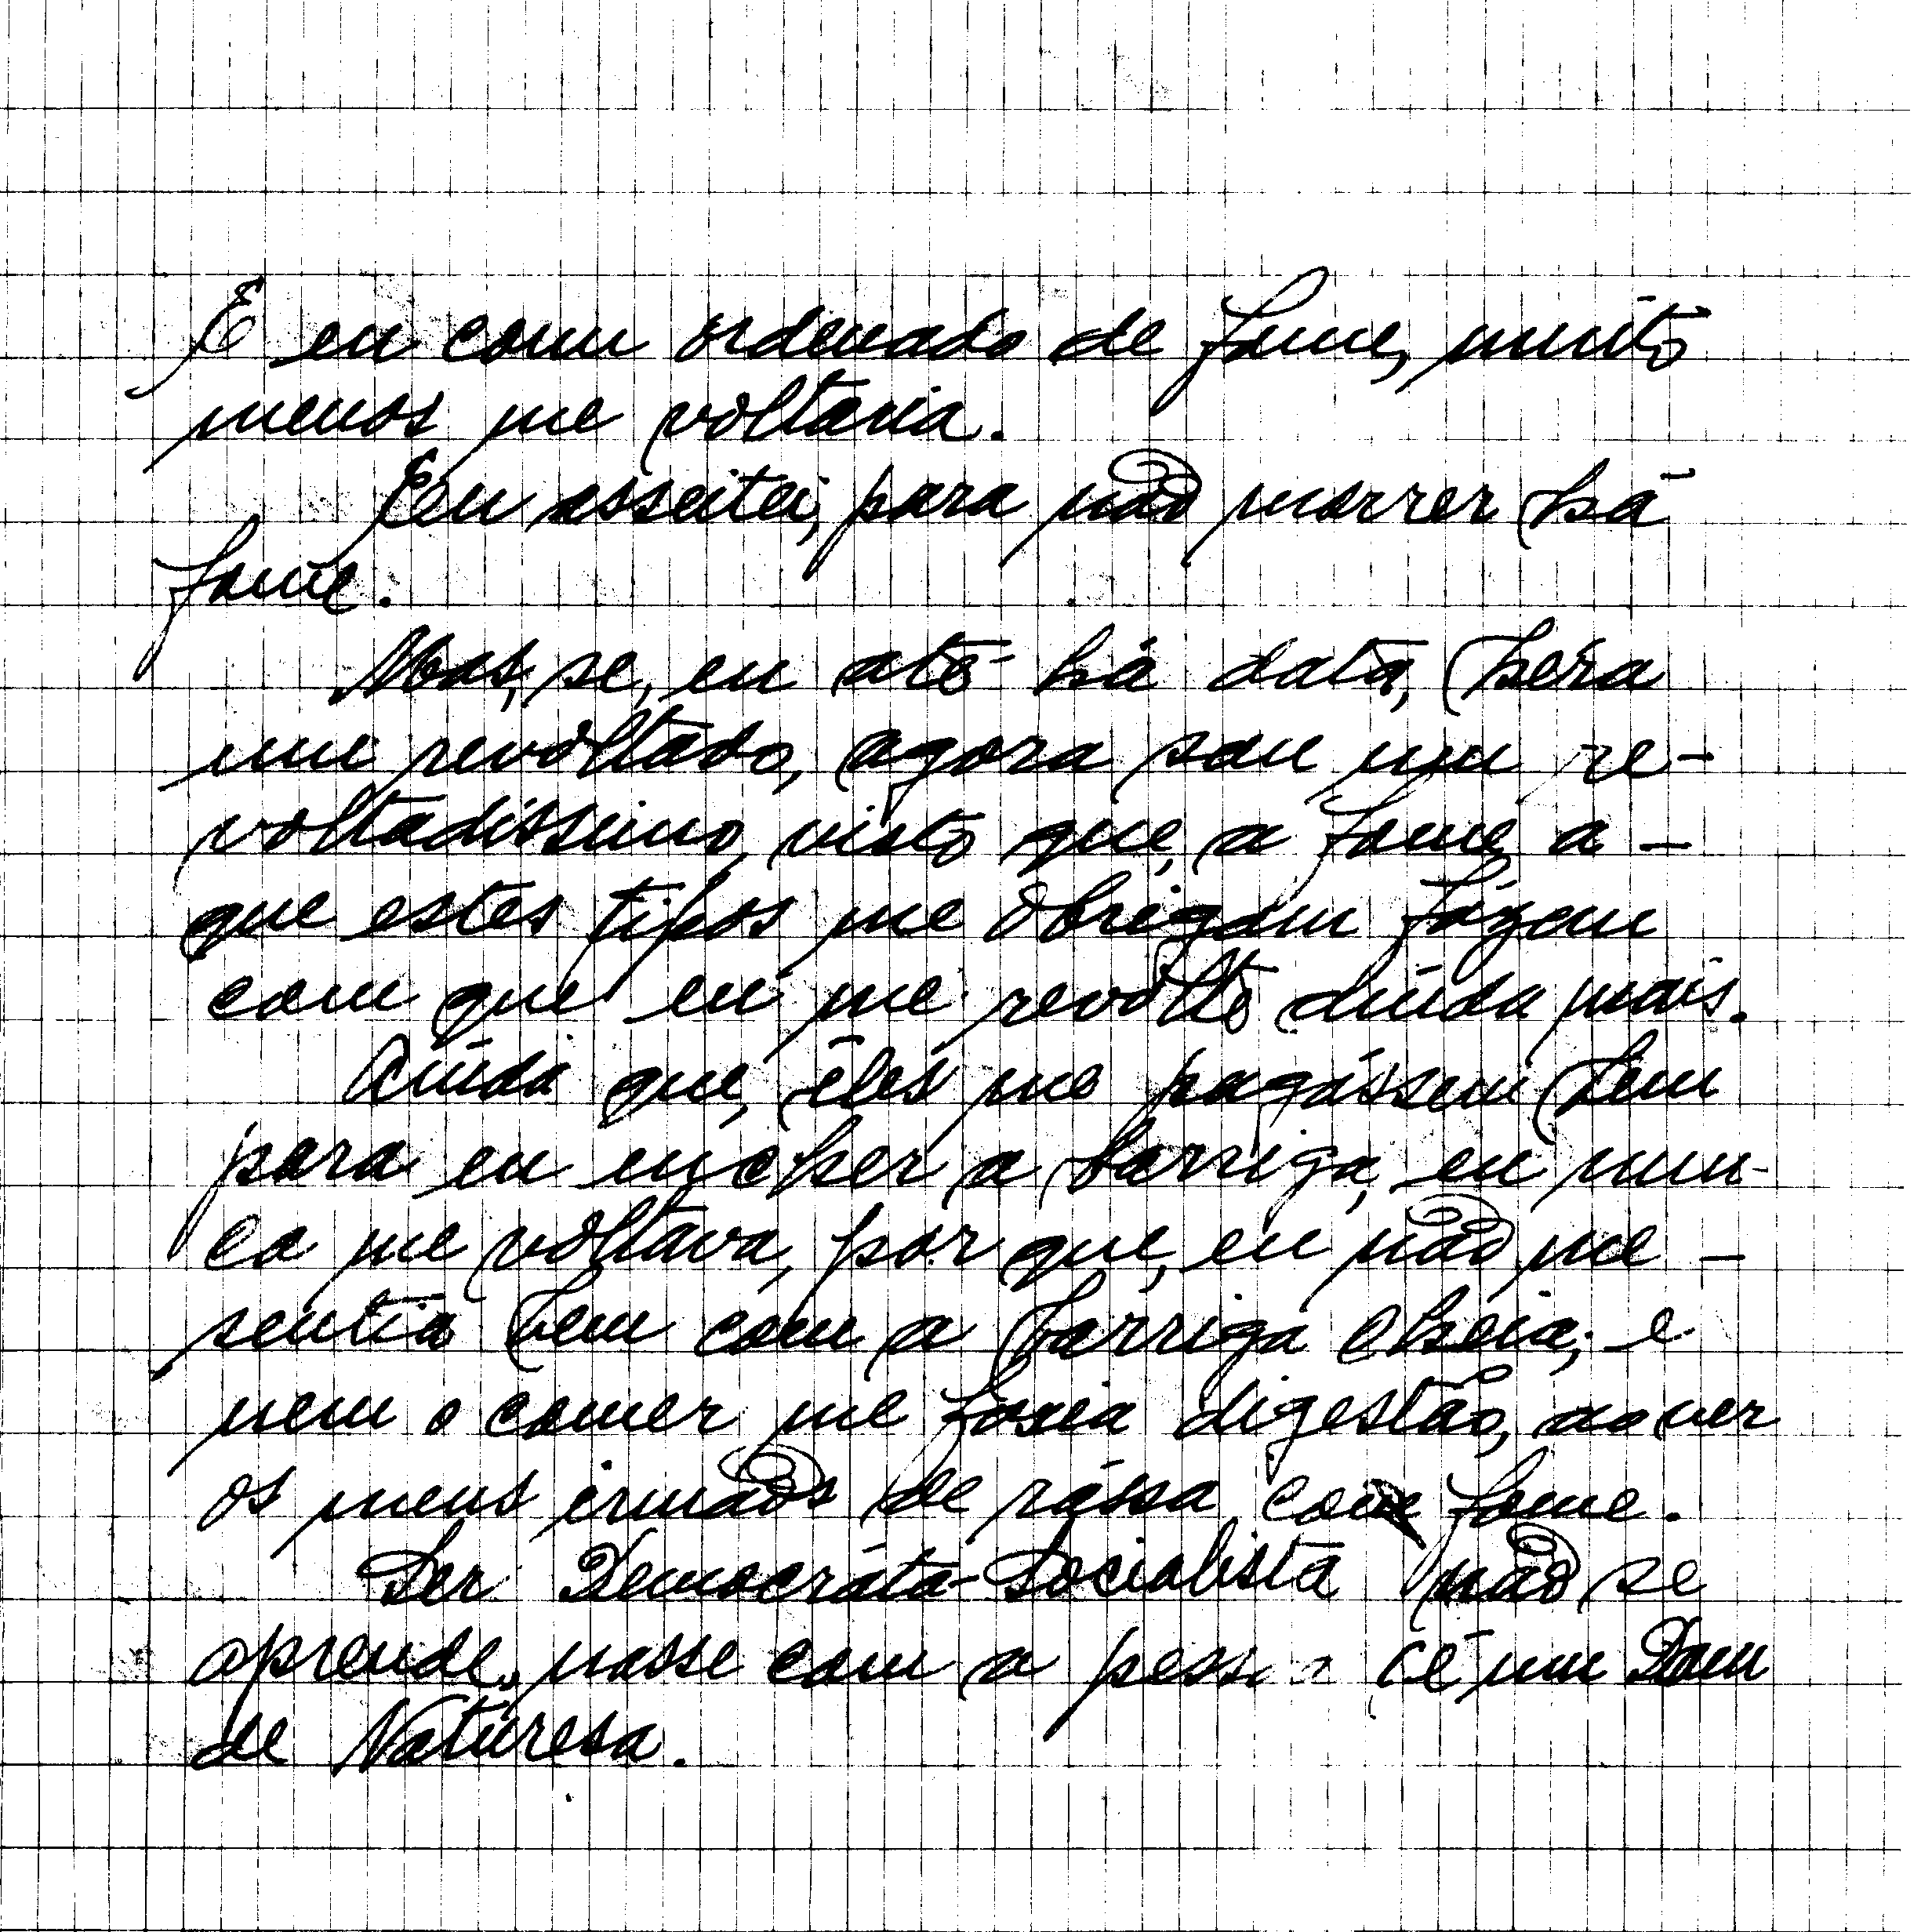 E eu com ordenado de fome, muito
menos me voltaria.
Eu asseitei, para não morrer há
fome.
Mas, se, eu até há data, hera
um revoltado, agora sou um re-
voltadissimo, visto que, a fome, a -
que estes tipos me obrigam fázem
com que eu me revolte ainda mais.
Ainda que, êles me pagássem bem
para eu encher a barriga, eu nun-
ca me voltava, por que, eu não me -
sentia bem com a barriga cheia; e
nem o comer me fasia digestão, ao ver
os meus irmãos de rássa com fome.
Ser Democráta-Socialista não se
aprende, nasse com a é um Dom
de Naturesa.